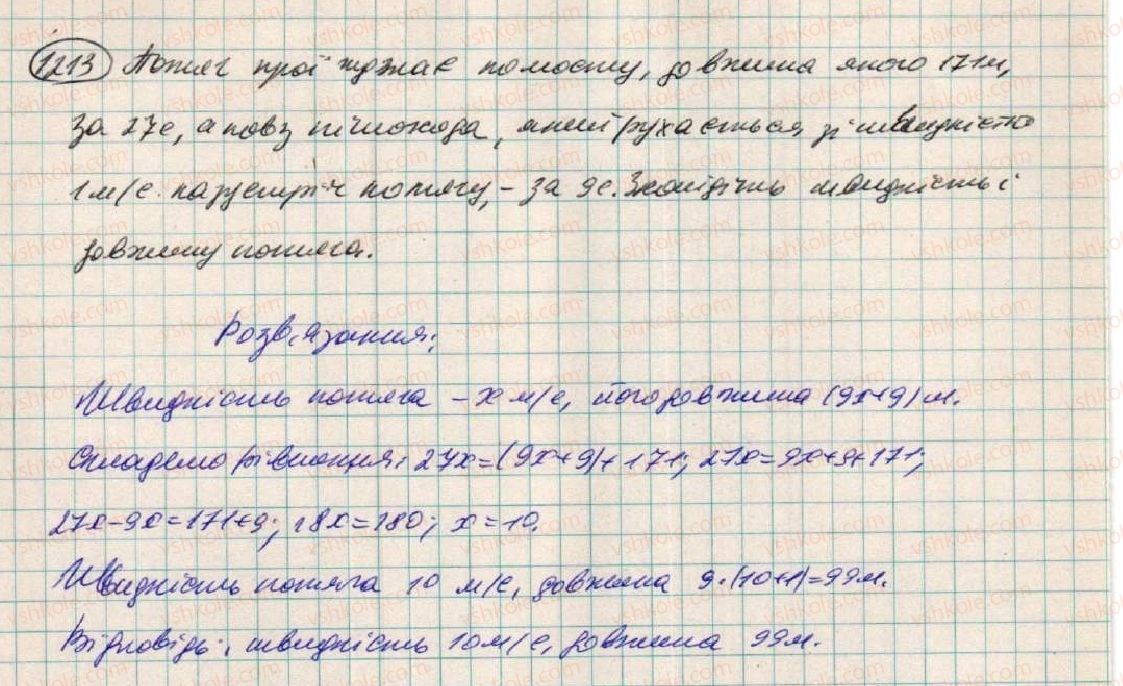 1213 Потяг проїжджає по мосту, довжина якого 171м,
за 27с, а повз пішохода, який рухається зі швидкістю
1м/с назустріч потягу, - за 9с. Знайдіть швидкість і
довжину потяга.
Розв'язання:
Швидкість потяга - x м/с, його довжина (9x+9)м.
Складемо рівняння: 27x=(9x+9)+171; 27x=9x+9+171;
27x-9x=171+9; 18x=180; x=10.
Швидкість потяга 10 м/с, довжина 9·(10+1)=99м.
Відповідь: швидкість 10м/с, довжина 99м.